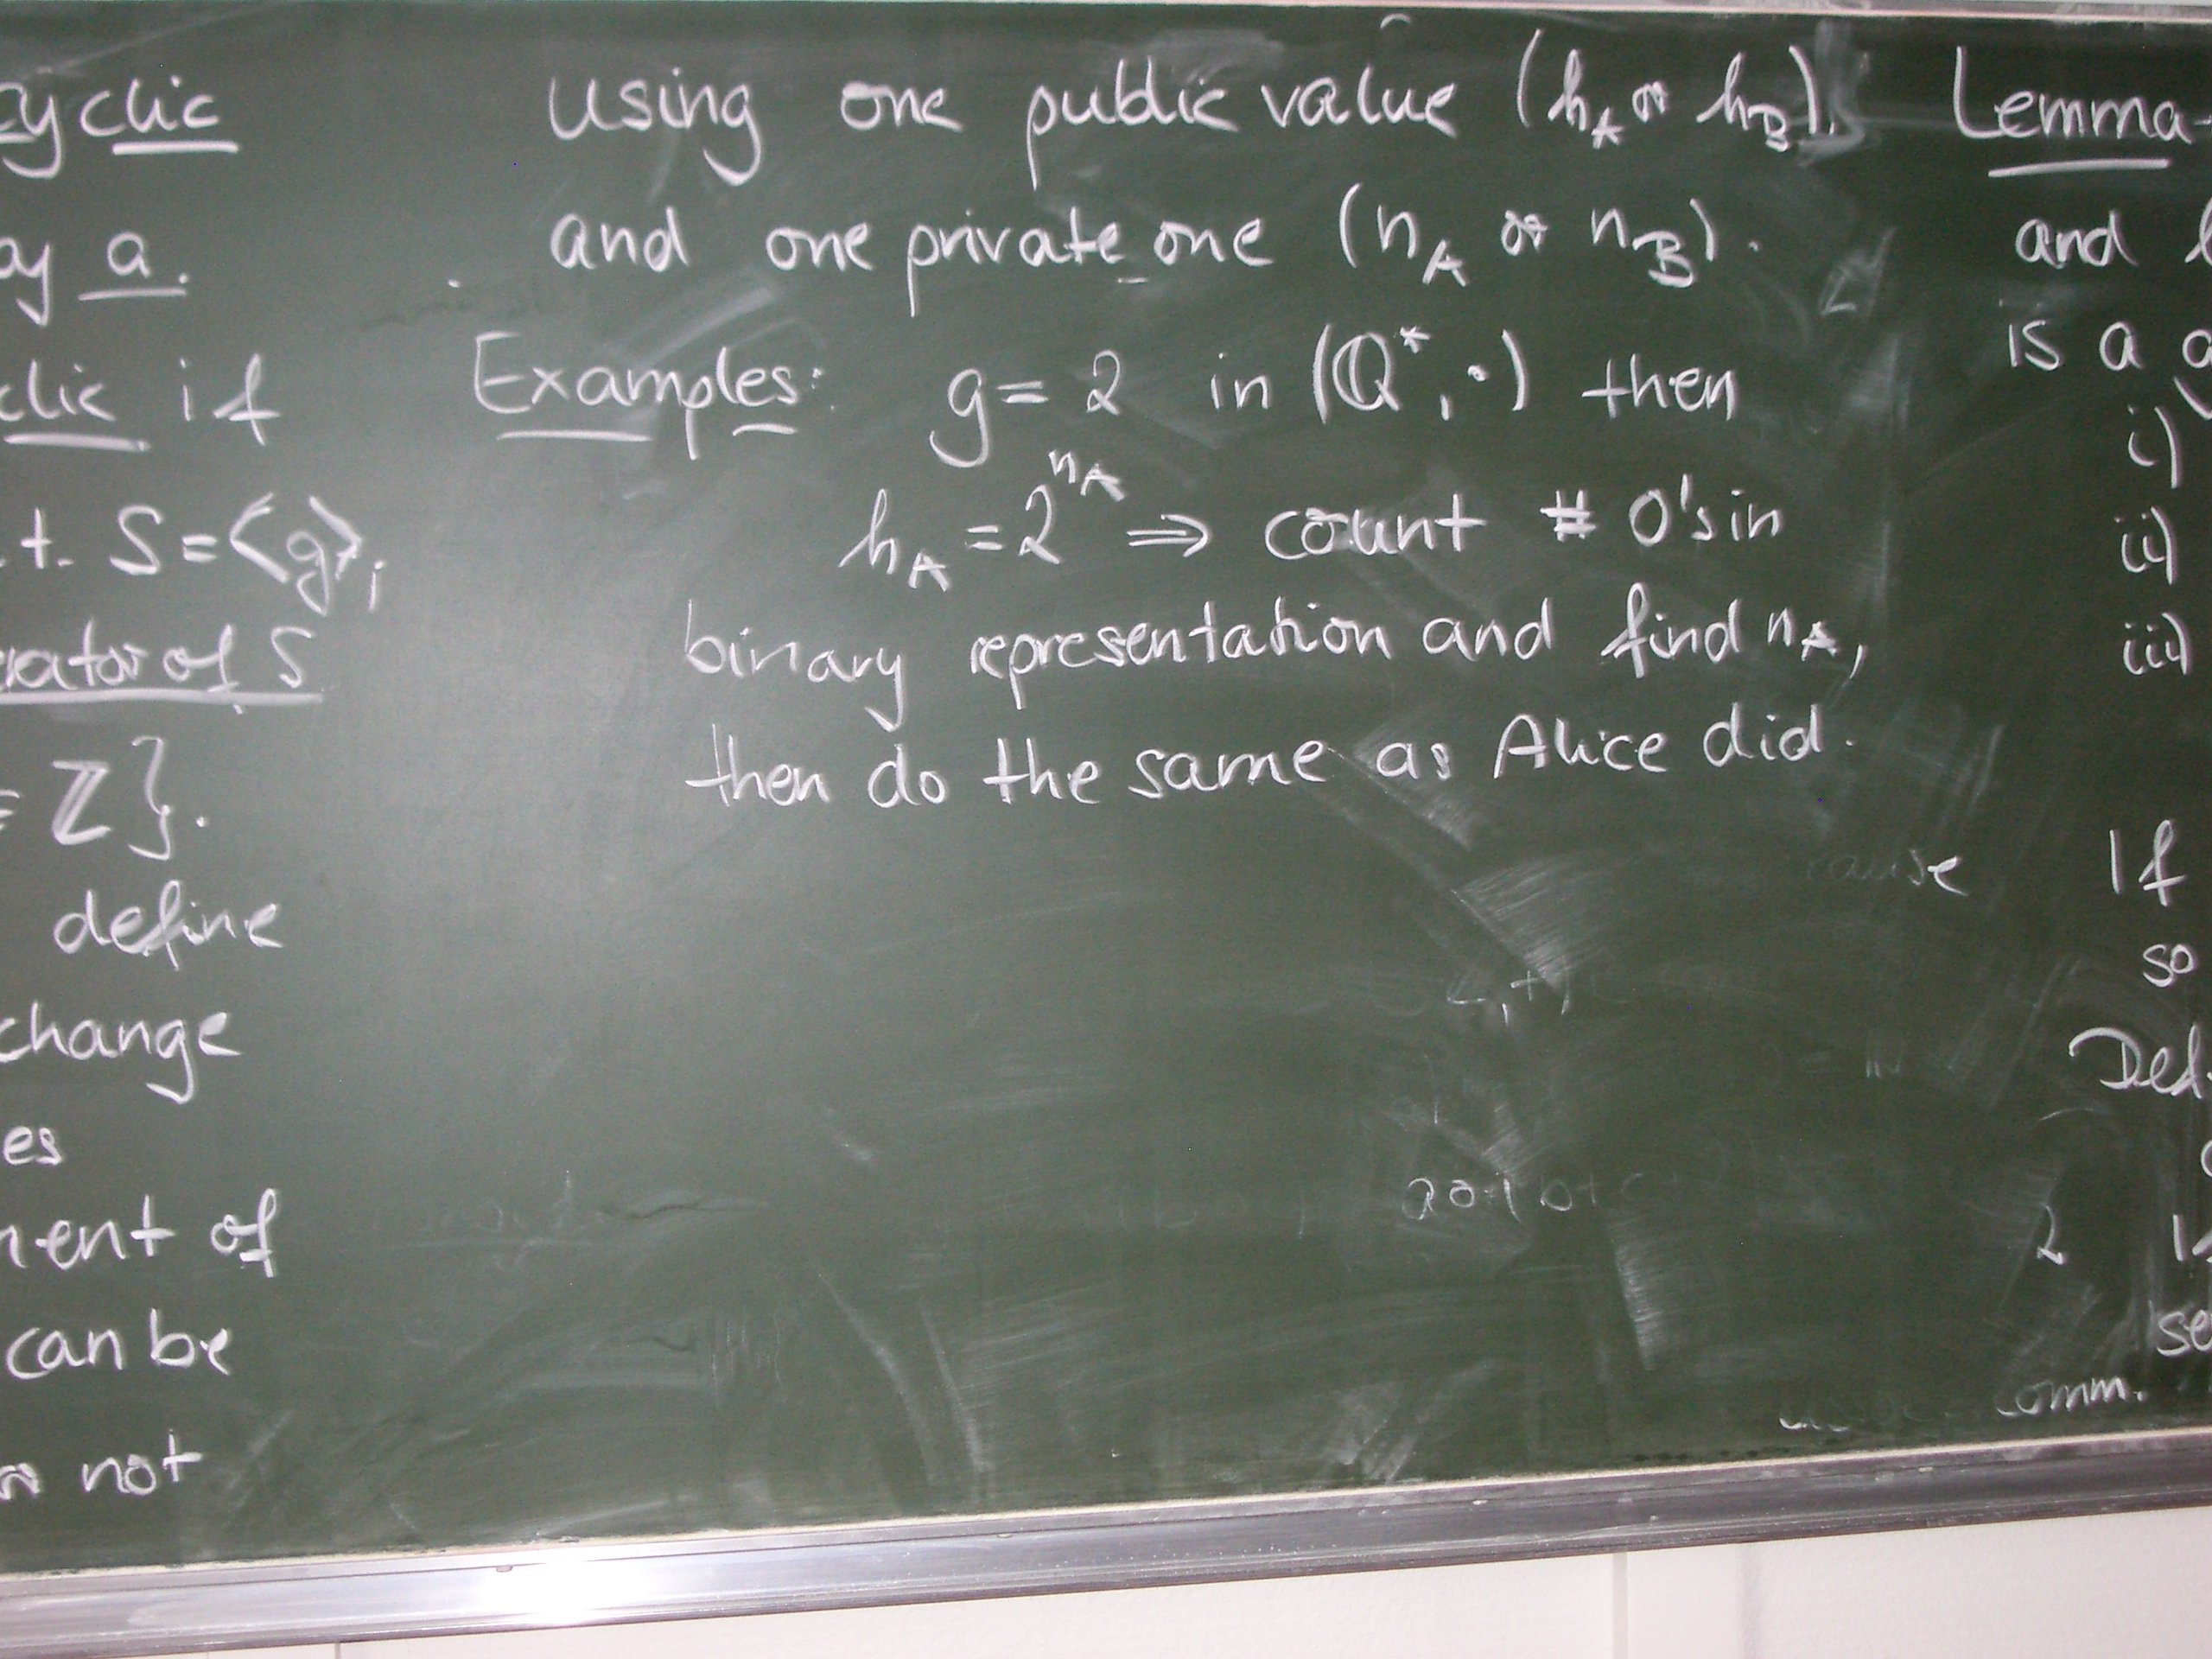 cyclic
by a.
clic if
.t. S=<g>,
rator of S
∈ ℤ}.
define
change
es
ment of
can be
or not
using one public value (h_A or h_B),
and one private one (n_A or n_B).
Examples: g=2 in (ℚ*,·) then
h_A = 2^{n_A} ⇒ count # 0's in
binary representation and find n_A,
then do the same as Alice did.
Lemma
and
is a
i)
ii)
iii)
If
so
Def.
2
se
comm.